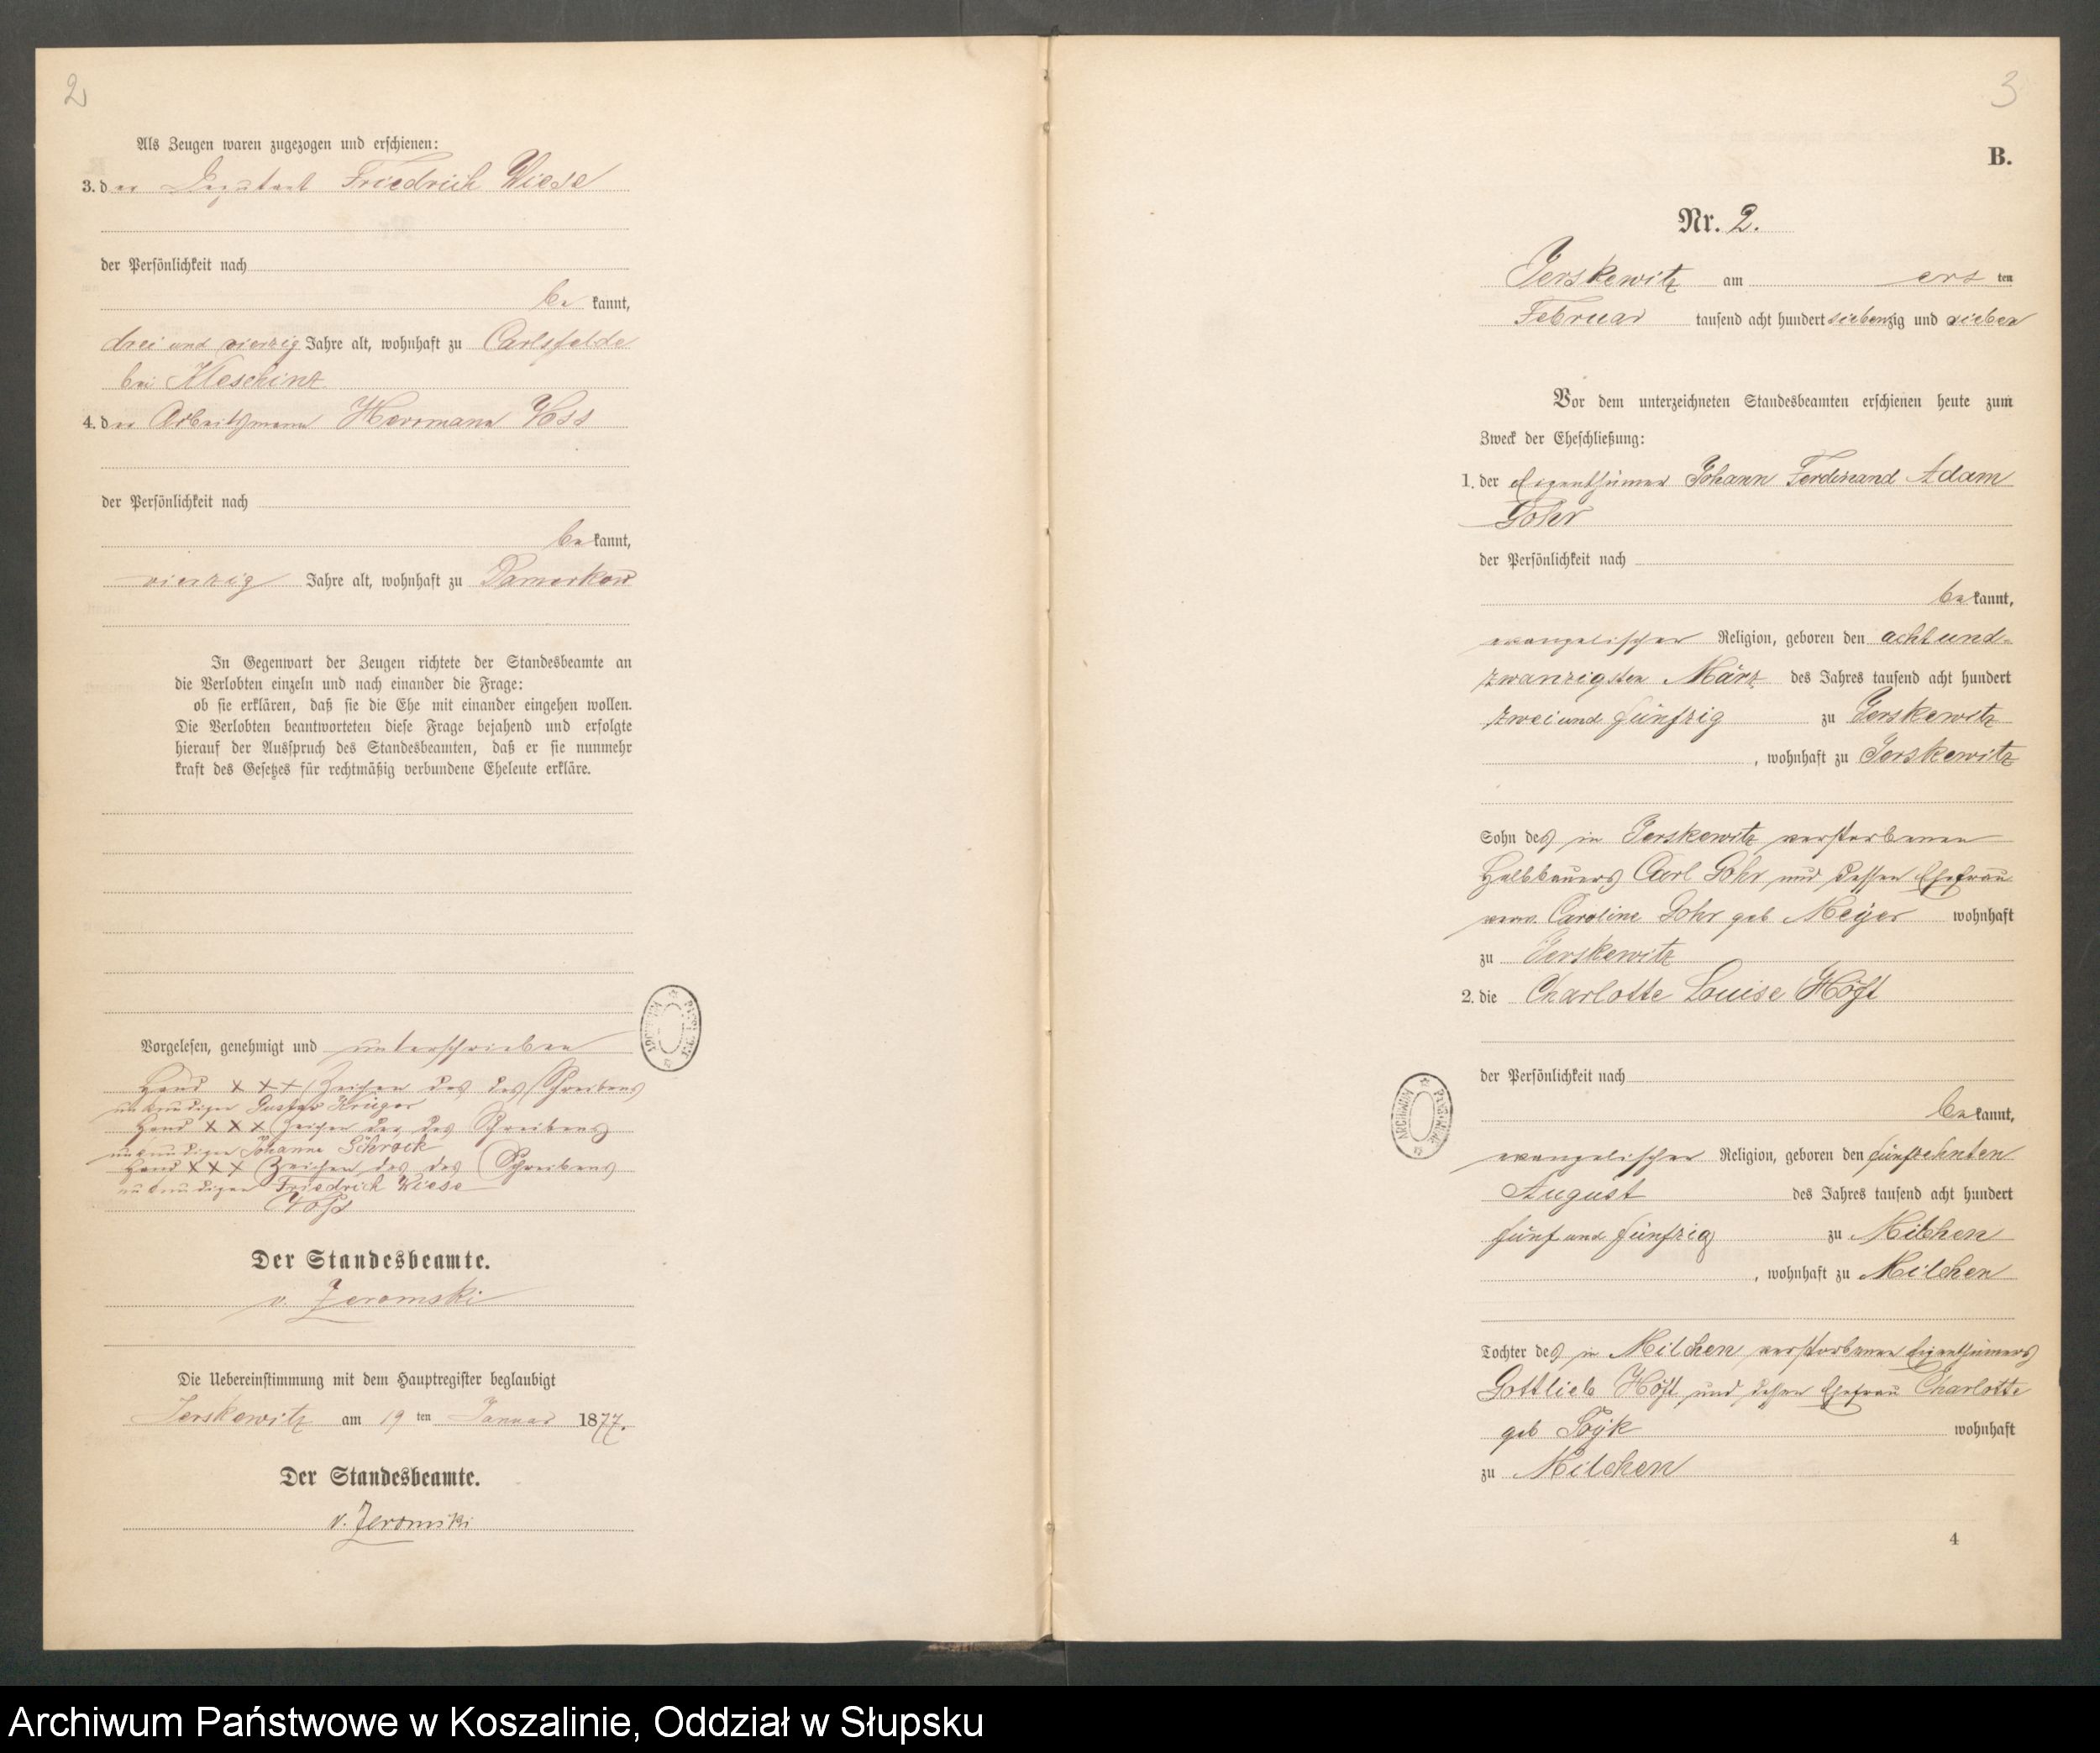 2
Als Zeugen waren zugezogen und erschienen:
3. der Deputant Friedrich Wiese
der Persönlichkeit nach
be kannt,
drei und vierzig Jahre alt, wohnhaft zu Carlsfelde
bei Kleschinz
4. der Arbeitsmann Herrmann Voss
der Persönlichkeit nach
be kannt,
vierzig Jahre alt, wohnhaft zu Damerkow
In Gegenwart der Zeugen richtete der Standesbeamte an
die Verlobten einzeln und nach einander die Frage:
ob sie erklären, daß sie die Ehe mit einander eingehen wollen.
Die Verlobten beantworteten diese Frage bejahend und erfolgte
hierauf der Ausspruch des Standesbeamten, daß er sie nunmehr
kraft des Gesetzes für rechtmäßig verbundene Eheleute erkläre.
Vorgelesen, genehmigt und unterschrieben
Hand x x x Zeichen des des Schreibens
unkundigen Gustav Krüger
Hand x x x Zeichen der des Schreibens
unkundigen Johanne Schrock
Hand x x x Zeichen des des Schreibens
unkundigen Friedrich Wiese
Voß
Der Standesbeamte.
v. Zeromski
Die Uebereinstimmung mit dem Hauptregister beglaubigt
Jerskewitz am 19 ten Januar 1877.
Der Standesbeamte.
v. Zeromski
ARCHIWUM
3
B.
Nr. 2.
Jerskewitz am ers ten
Februar tausend acht hundert siebenzig und sieben
Vor dem unterzeichneten Standesbeamten erschienen heute zum
Zweck der Eheschließung:
1. der Eigenthümer Johann Ferdinand Adam
Gohr
der Persönlichkeit nach
be kannt,
evangelischer Religion, geboren den achtund-
zwanzigsten März des Jahres tausend acht hundert
zwei und fünfzig zu Jerskewitz
, wohnhaft zu Jerskewitz
Sohn des in Jerskewitz verstorbenen
Halbbauers Carl Gohr und dessen Ehefrau
verw. Caroline Gohr geb Meyer wohnhaft
zu Jerskewitz
2. die Charlotte Louise Höft
der Persönlichkeit nach
be kannt,
evangelischer Religion, geboren den fünfzehnten
August des Jahres tausend acht hundert
fünf und fünfzig zu Milchen
, wohnhaft zu Milchen
Tochter des in Milchen verstorbenen Eigenthümers
Gottlieb Höft und dessen Ehefrau Charlotte
geb Loyk wohnhaft
zu Milchen
ARCHIWUM
4
Archiwum Państwowe w Koszalinie, Oddział w Słupsku